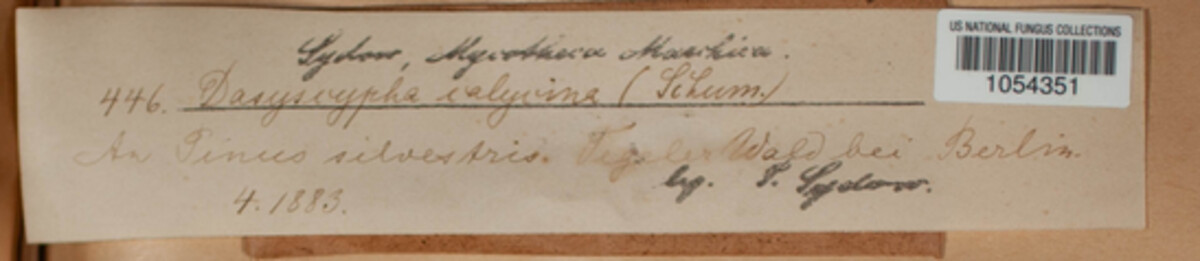 Sydow, Mycotheca Marchica.
446. Dasyscypha calycina (Schum.)
An Pinus silvestris. Tegeler Wald bei Berlin.
leg. P. Sydow.
4. 1883.
US NATIONAL FUNGUS COLLECTIONS
1054351